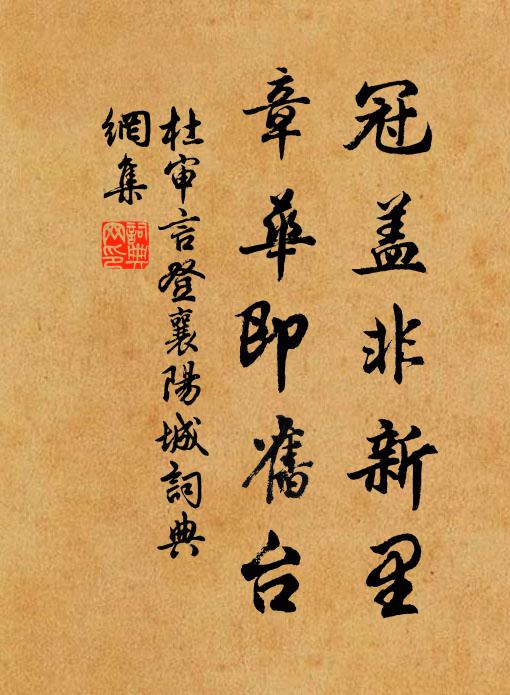 冠盖非新里
章華即舊台
杜审言登襄陽城詞典
網集
詞典
网印